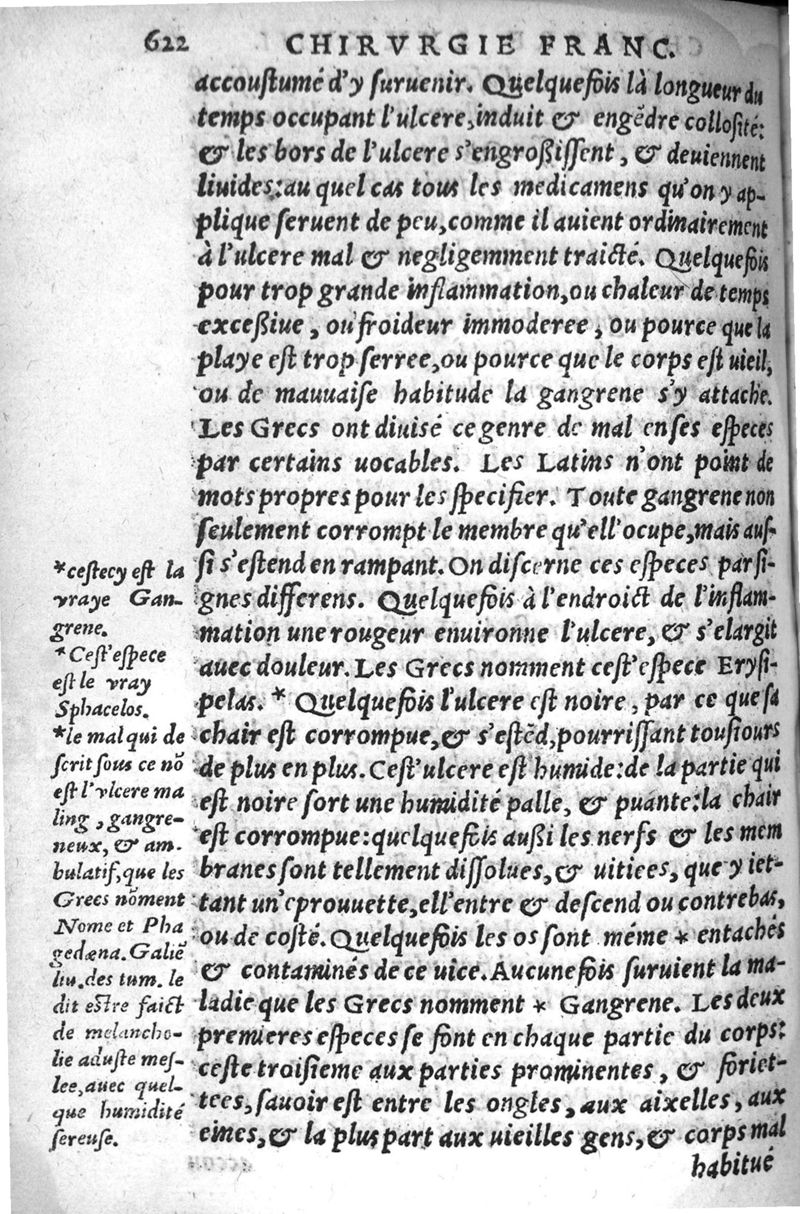 622 CHIRVRGIE FRANC.
accouſtumé d'y ſuruenir. Quelquefois là longueur du
temps occupant l'ulcere, induit & engẽdre colloſité:
& les bors de l'ulcere s'engroßiſſent, & deuiennent
liuides: au quel cas tous les medicamens qu'on y ap-
plique ſeruent de peu, comme il auient ordinairement
à l'ulcere mal & negligemment traicté. Quelquefois
pour trop grande inflammation, ou chaleur de temps
exceßiue, ou froideur immoderee, ou pource que la
playe eſt trop ſerree, ou pource que le corps eſt uieil,
ou de mauuaiſe habitude la gangrene s'y attache.
Les Grecs ont diuisé ce genre de mal en ſes eſpeces
par certains uocables. Les Latins n'ont point de
mots propres pour les ſpecifier. Toute gangrene non
ſeulement corrompt le membre qu'ell'ocupe, mais auſ-
ſi s'eſtend en rampant. On diſcerne ces eſpeces par ſi-
gnes differens. Quelquefois à l'endroict de l'inflam-
mation une rougeur enuironne l'ulcere, & s'elargit
auec douleur. Les Grecs nomment ceſt'eſpece Eryſi-
pelas. * Quelquefois l'ulcere eſt noire, par ce que ſa
chair eſt corrompue, & s'eſtẽd, pourriſſant touſiours
de plus en plus. Ceſt'ulcere eſt humide: de la partie qui
eſt noire ſort une humidité palle, & puante: la chair
eſt corrompue: quelquefois außi les nerfs & les mem
branes ſont tellement diſſolues, & uitiees, que y iet-
tant un'eprouuette, ell'entre & deſcend ou contrebas,
ou de coſté. Quelquefois les os ſont méme * entachés
& contaminés de ce uice. Aucunefois ſuruient la ma-
ladie que les Grecs nomment * Gangrene. Les deux
premieres eſpeces ſe font en chaque partie du corps:
ceſte troiſieme aux parties prominentes, & foriet-
tees, ſauoir eſt entre les ongles, aux aixelles, aux
eines, & la plus part aux uieilles gens, & corps mal
habitué
*ceſtecy eſt la
vraye Gan-
grene.
*Ceſt'eſpece
eſt le vray
Sphacelos.
*le mal qui de
ſcrit ſous ce nõ
eſt l'vlcere ma
ling, gangre-
neux, & am-
bulatif, que les
Grecs nõment
Nome et Pha
gedæna. Galiẽ
liu. des tum. le
dit eſtre faict
de melancho-
lie aduſte meſ-
lee, auec quel-
que humidité
ſereuſe.